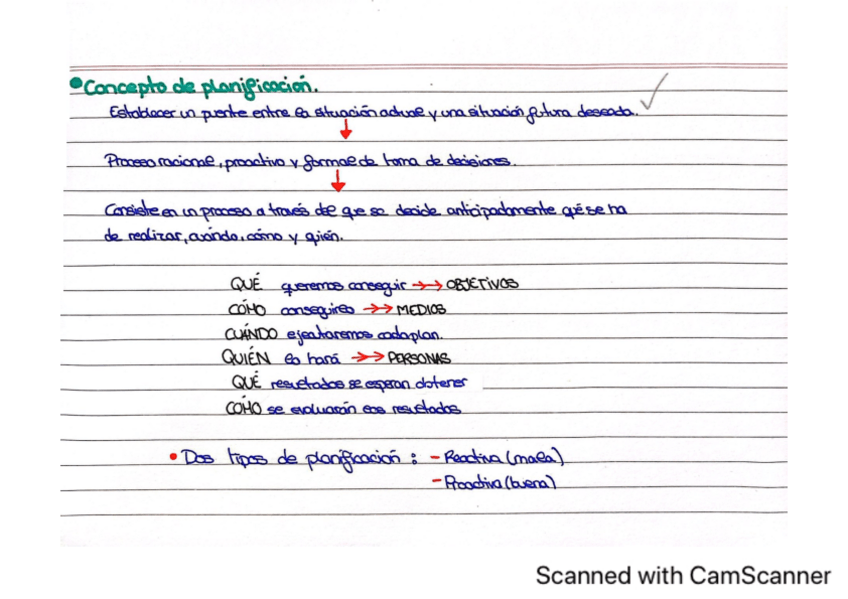 Concepto de planificación.
Establecer un puente entre la situación actual y una situación futura deseada.
Proceso racional, proactivo y formal de toma de decisiones.
Consiste en un proceso a través del que se decide anticipadamente qué se ha
de realizar, cuándo, cómo y quién.
QUÉ queremos conseguir →→ OBJETIVOS
CÓMO conseguirlo →→ MEDIOS
CUÁNDO ejecutaremos cada plan.
QUIÉN lo hará →→ PERSONAS
QUÉ resultados se esperan obtener
CÓMO se evaluarán los resultados
• Dos tipos de planificación : - Reactiva (mala)
- Proactiva (buena)
Scanned with CamScanner